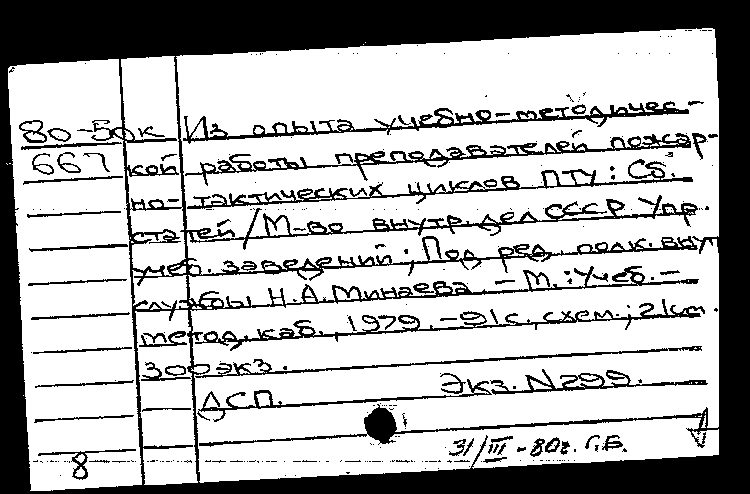 80-50к Из опыта учебно-методичес-
667 кой работы преподавателей пожар-
но-тактических циклов ПТУ: Сб.
статей / М-во внутр. дел СССР. Упр.
учеб. заведений; Под ред. полк. внут
службы Н.А. Минаева. - М.: Учеб.-
метод. каб., 1979. - 91 с., схем.; 21 см.
300 экз.
ДСП. Экз. N 299.
31/III - 80г. Г.Б.
8